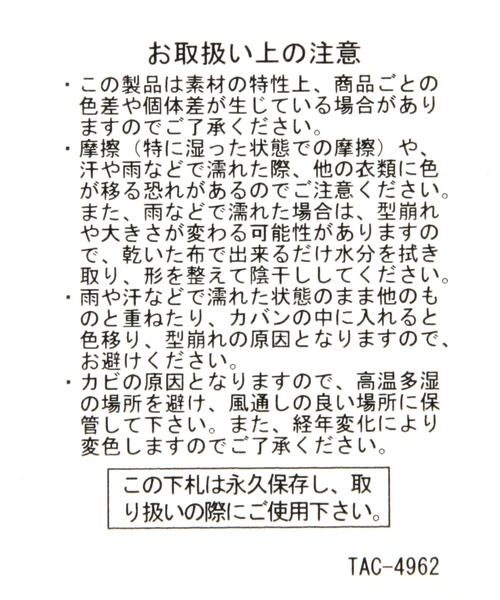 お取扱い上の注意
・この製品は素材の特性上、商品ごとの
色差や個体差が生じている場合があり
ますのでご了承ください。
・摩擦（特に湿った状態での摩擦）や、
汗や雨などで濡れた際、他の衣類に色
が移る恐れがあるのでご注意ください。
また、雨などで濡れた場合は、型崩れ
や大きさが変わる可能性がありますの
で、乾いた布で出来るだけ水分を拭き
取り、形を整えて陰干ししてください。
・雨や汗などで濡れた状態のまま他のも
のと重ねたり、カバンの中に入れると
色移り、型崩れの原因となりますので、
お避けください。
・カビの原因となりますので、高温多湿
の場所を避け、風通しの良い場所に保
管して下さい。また、経年変化により
変色しますのでご了承ください。
この下札は永久保存し、取
り扱いの際にご使用下さい。
TAC-4962